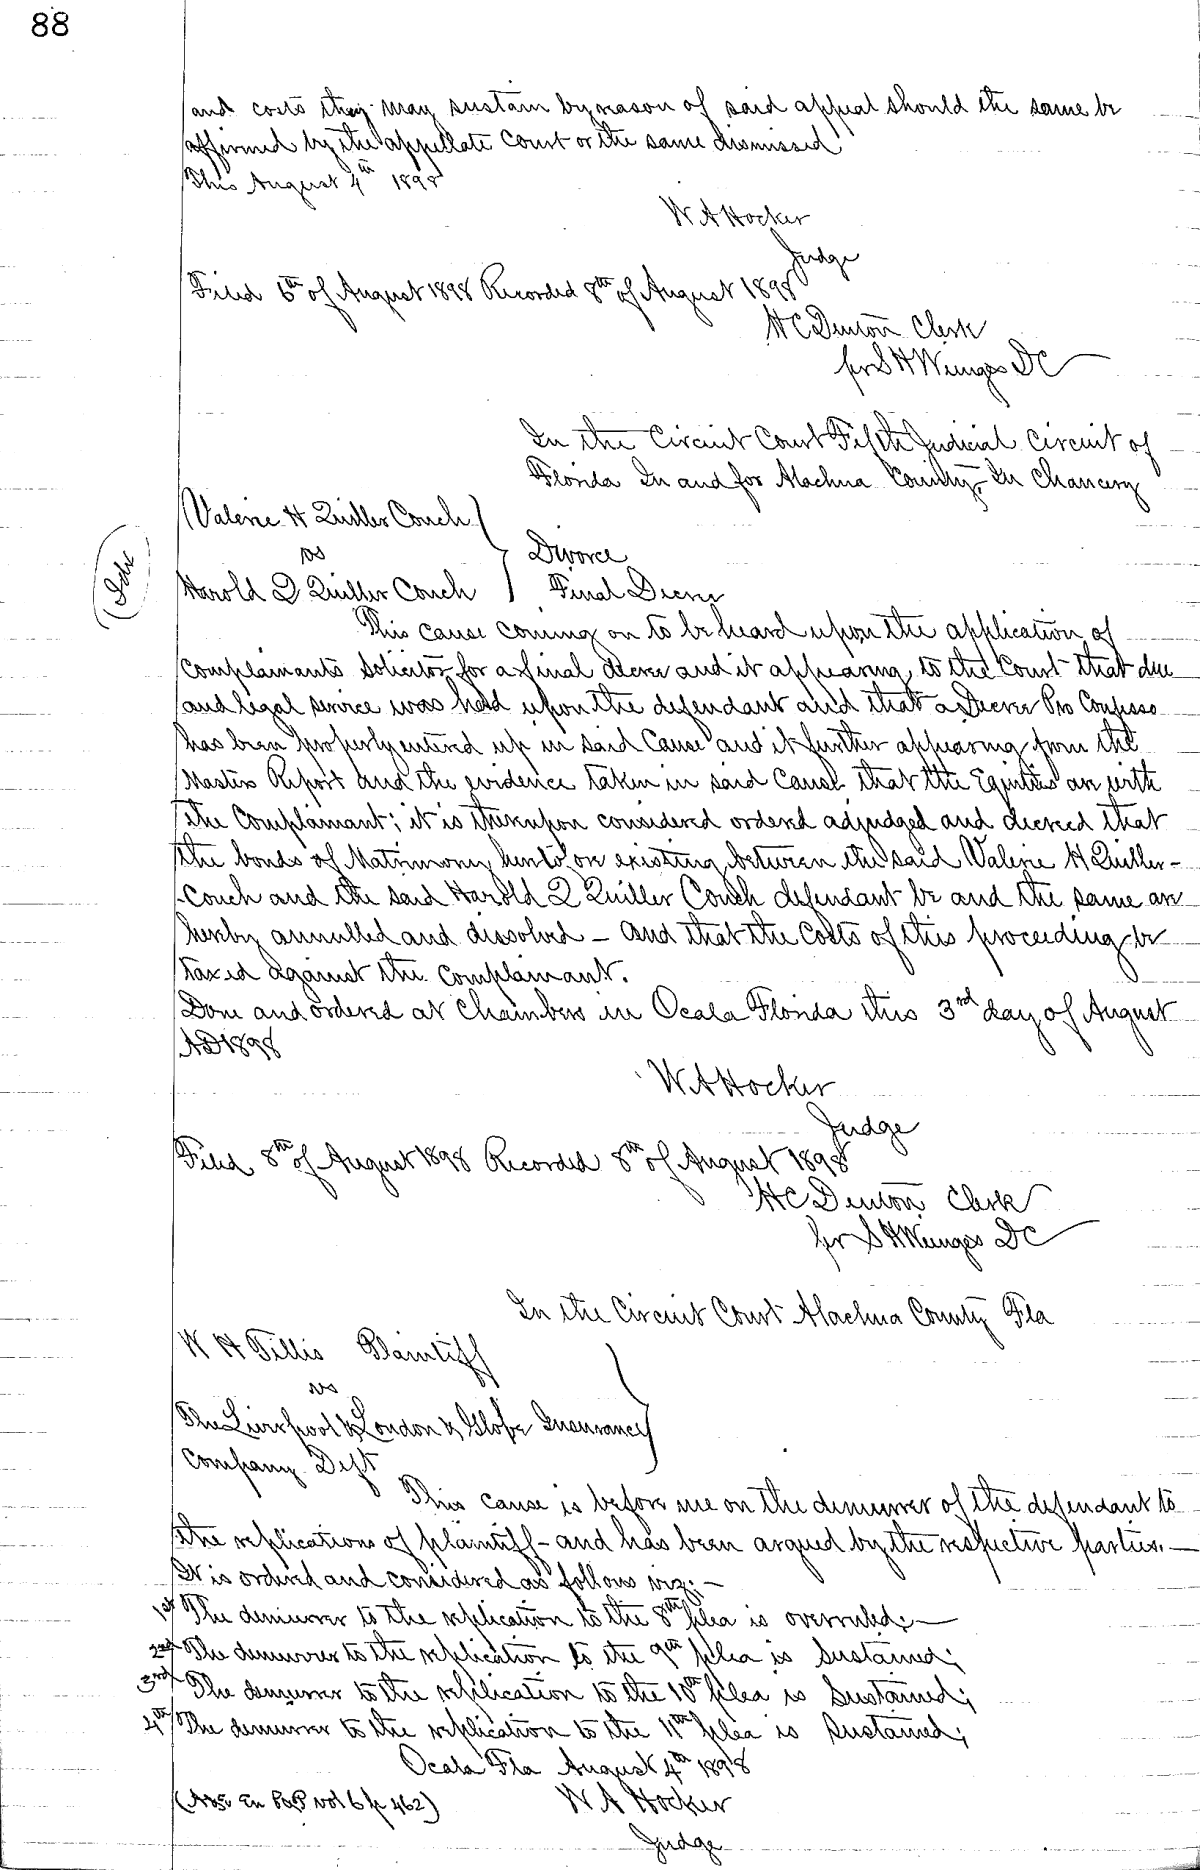 88
and costs they may sustain by reason of said appeal should the same be
affirmed by the appellate Court or the same dismissed
This August 4th 1898
W A Hocker
Judge
Filed 6th of August 1898 Recorded 8th of August 1898
H C Denton Clerk
per S H Wienges DC
In the Circuit Court Fifth Judicial Circuit of
Florida In and for Alachua County, In Chancery
Valerie H Quiller Couch
vs
Divorce
Harold Q Quiller Couch
Final Decree
This cause coming on to be heard upon the application of
Complainants Solicitor for a final decree and it appearing to the Court that due
and legal service was had upon the defendant and that a Decree Pro Confesso
has been properly entered up in said Cause and it further appearing from the
Masters Report and the evidence taken in said Cause that the Equities are with
the Complainant; it is thereupon considered ordered adjudged and decreed that
the bonds of Matrimony heretofore existing between the said Valerie H Quiller-
-Couch and the said Harold Q Quiller Couch defendant be and the same are
hereby annulled and dissolved - and that the Costs of this proceeding be
taxed against the Complainant.
Done and ordered at Chambers in Ocala Florida this 3rd day of August
AD 1898
W A Hocker
Judge
Filed 8th of August 1898 Recorded 8th of August 1898
H C Denton Clerk
per S H Wienges DC
In the Circuit Court Alachua County Fla
W H Tillis Plaintiff
vs
The Liverpool & London & Globe Insurance
Company Deft
This cause is before me on the demurrer of the defendant to
the replications of plaintiff - and has been argued by the respective parties. -
It is ordered and considered as follows viz: -
1st The demurrer to the replication to the 8th plea is overruled; -
2nd The demurrer to the replication to the 9th plea is Sustained;
3rd The demurrer to the replication to the 10th plea is Sustained;
4th The demurrer to the replication to the 11th plea is Sustained;
Ocala Fla August 4th 1898
W A Hocker
vol 6 p 462)
Judge